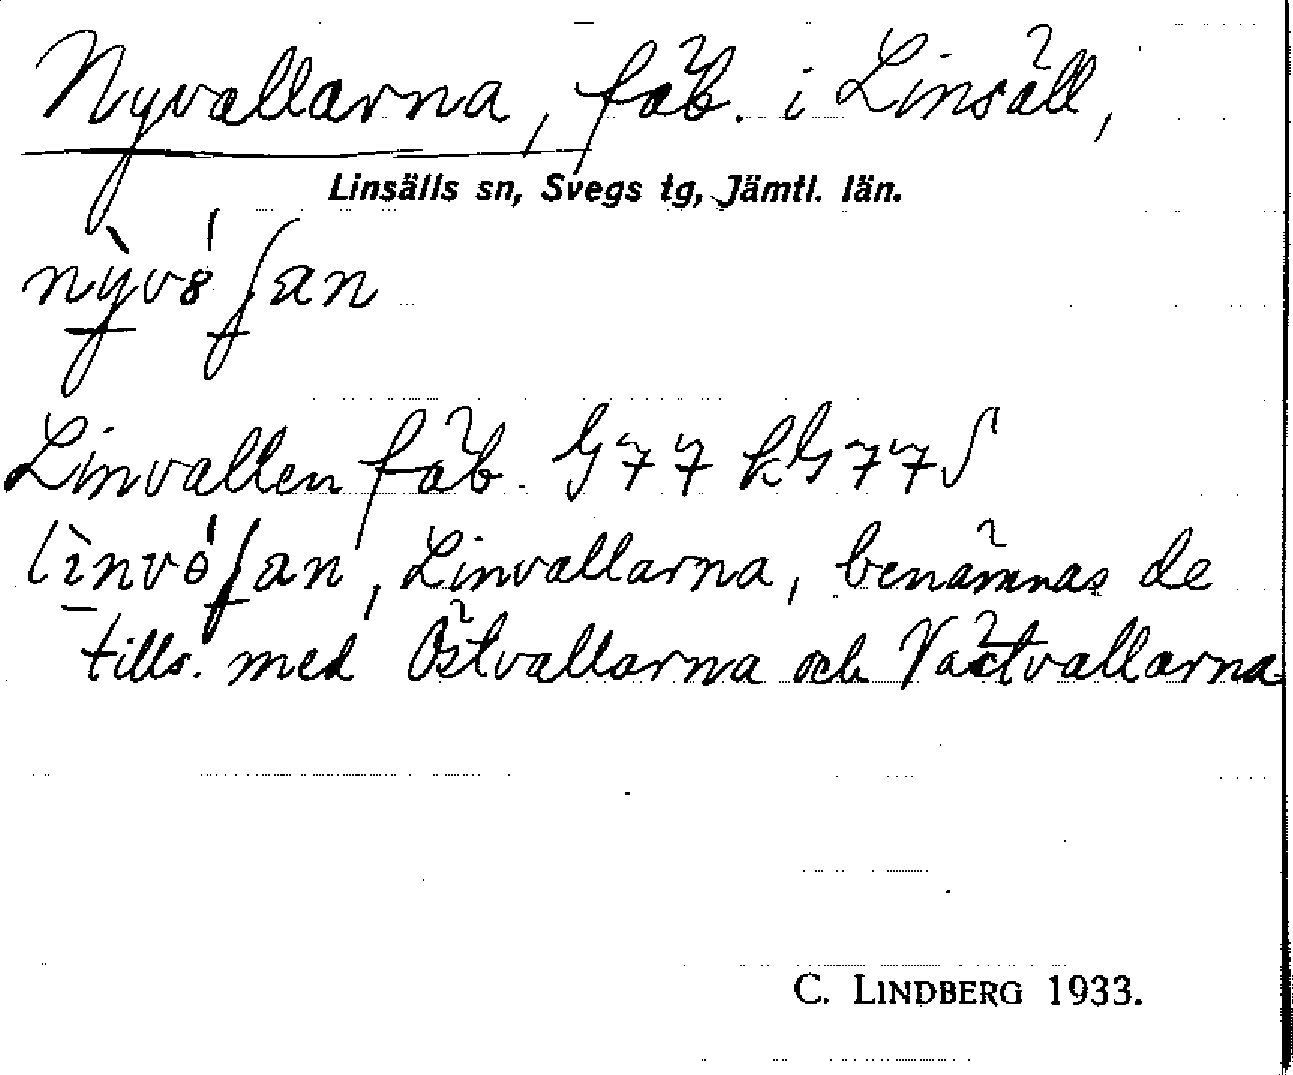 Nyvallarna, fäb. i Linsäll,
Linsälls sn, Svegs tg, Jämtl. län.
Linvallen fäb. G77 kG77
Linvallarna, benämnas de
tills. med Östvallarna och Västvallarna
C. LINDBERG 1933.